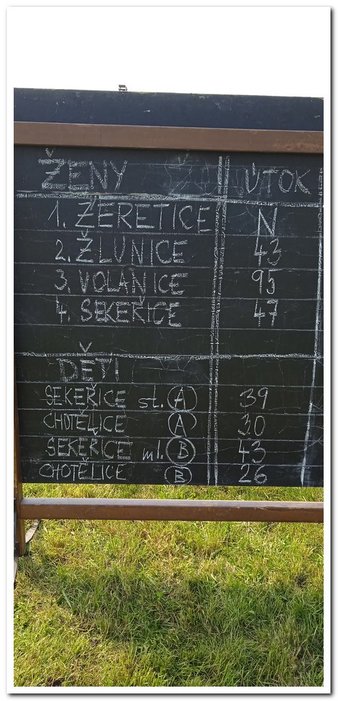 ŽENY ÚTOK
1. ŽERETICE N
2. ŽLUNICE 43
3. VOLANICE 95
4. SEKEŘICE 47
DĚTI
SEKEŘICE st. A 39
CHOTĚLICE A 30
SEKEŘICE ml. B 43
CHOTĚLICE B 26